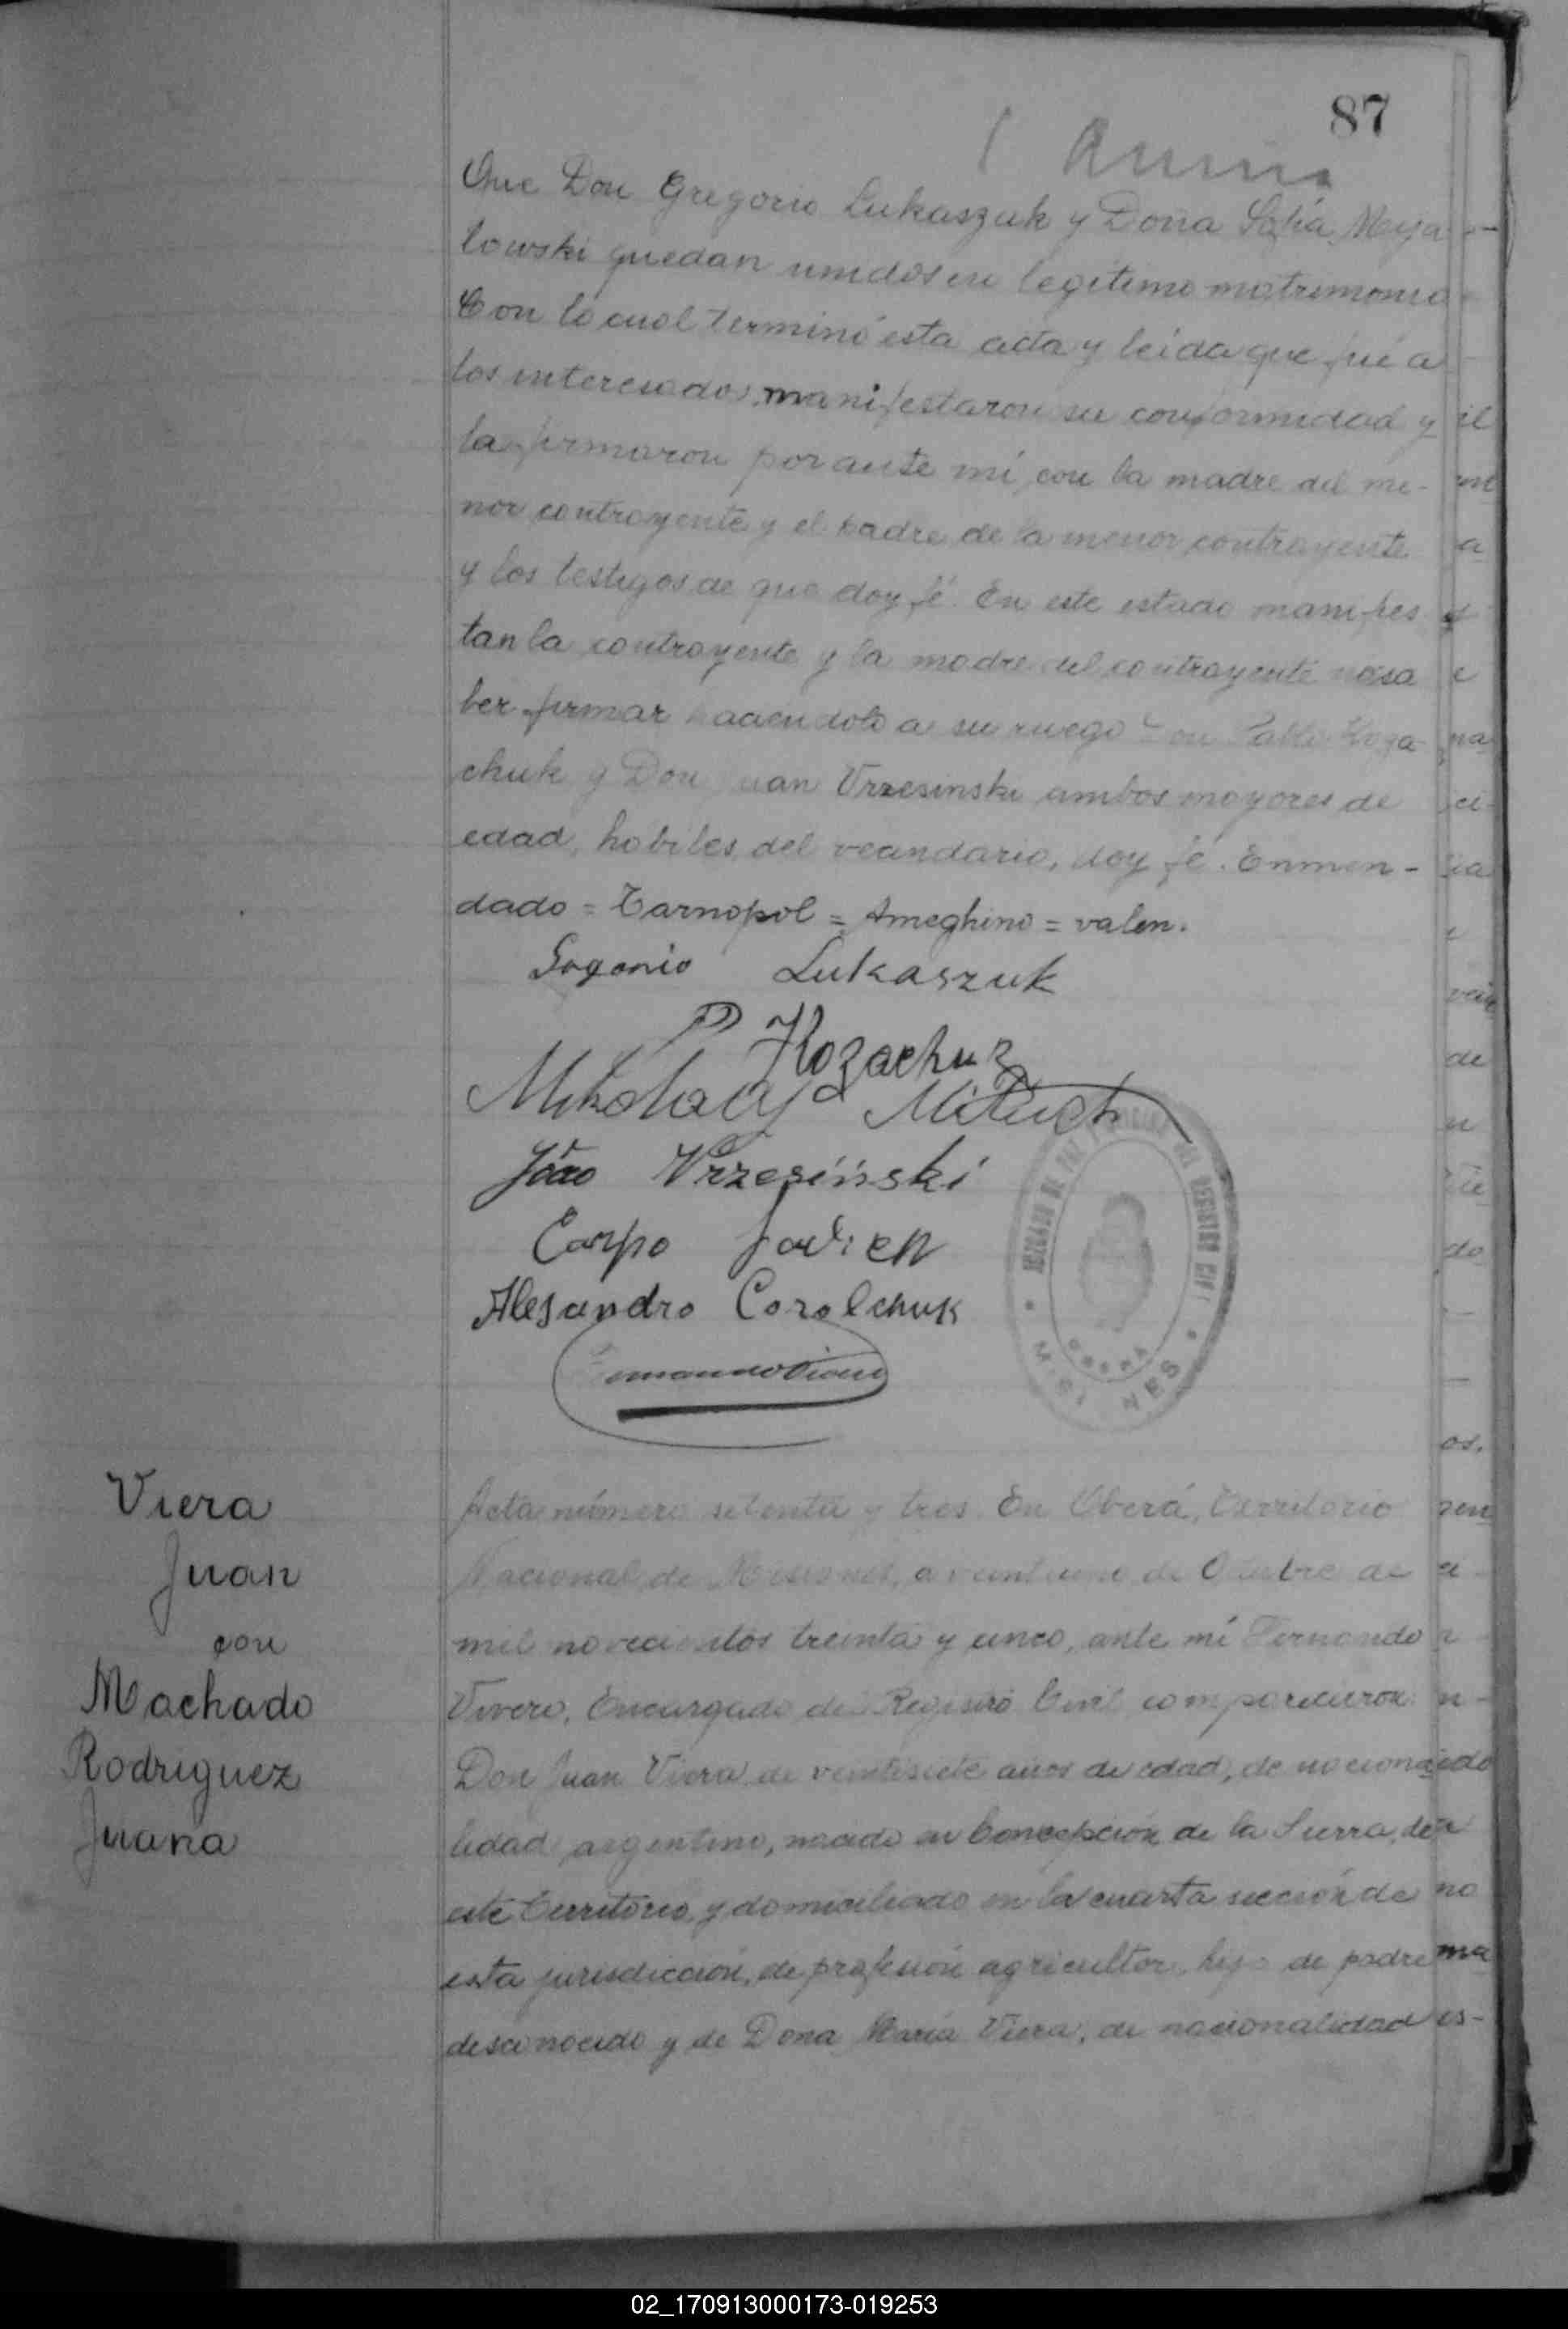 87
Que Don Gregorio Lukaszuk y Doña Sofia Meya
lowski quedan unidos en legítimo matrimonio
Con lo cual terminó esta acta y leída que fué a
los interesados, manifestaron su conformidad y
la firmaron por ante mí, con la madre del me-
nor contrayente y el padre de la menor contrayente
y los testigos de que doy fé. En este estado manifies
tan la contrayente y la madre del contrayente no sa
ber firmar haciendolo a su ruego Don Pablo Koza
chuk y Don Juan Vrzesinski ambos mayores de
edad, hobiles, del vecindario, doy fé. Enmen-
dado = Tarnopol = Ameghino = valen.
Lukaszuk
P Kozachuk
Mikolay
João Vrzesiński
Carpo
Alesandro Corolchuk
JUZGADO DE PAZ Y OFICINA DEL REGISTRO CIVIL
OBERA
MISIONES
Viera
Juan
con
Machado
Rodriguez
Juana
Acta número setenta y tres. En Oberá, Territorio
Nacional de Misiones, a veintiuno de Octubre de
mil novecientos treinta y cinco, ante mí Fernando
Vivero, Encargado del Registro Civil comparecieron:
Don Juan Viera, de veintisiete años de edad, de naciona
lidad argentino, nacido en Concepción de la Sierra, de
este Territorio, y domiciliado en la cuarta sección de
esta jurisdicción, de profesión agricultor, hijo de padre
desconocido y de Dona María Viera, de nacionalidad
02_170913000173-019253